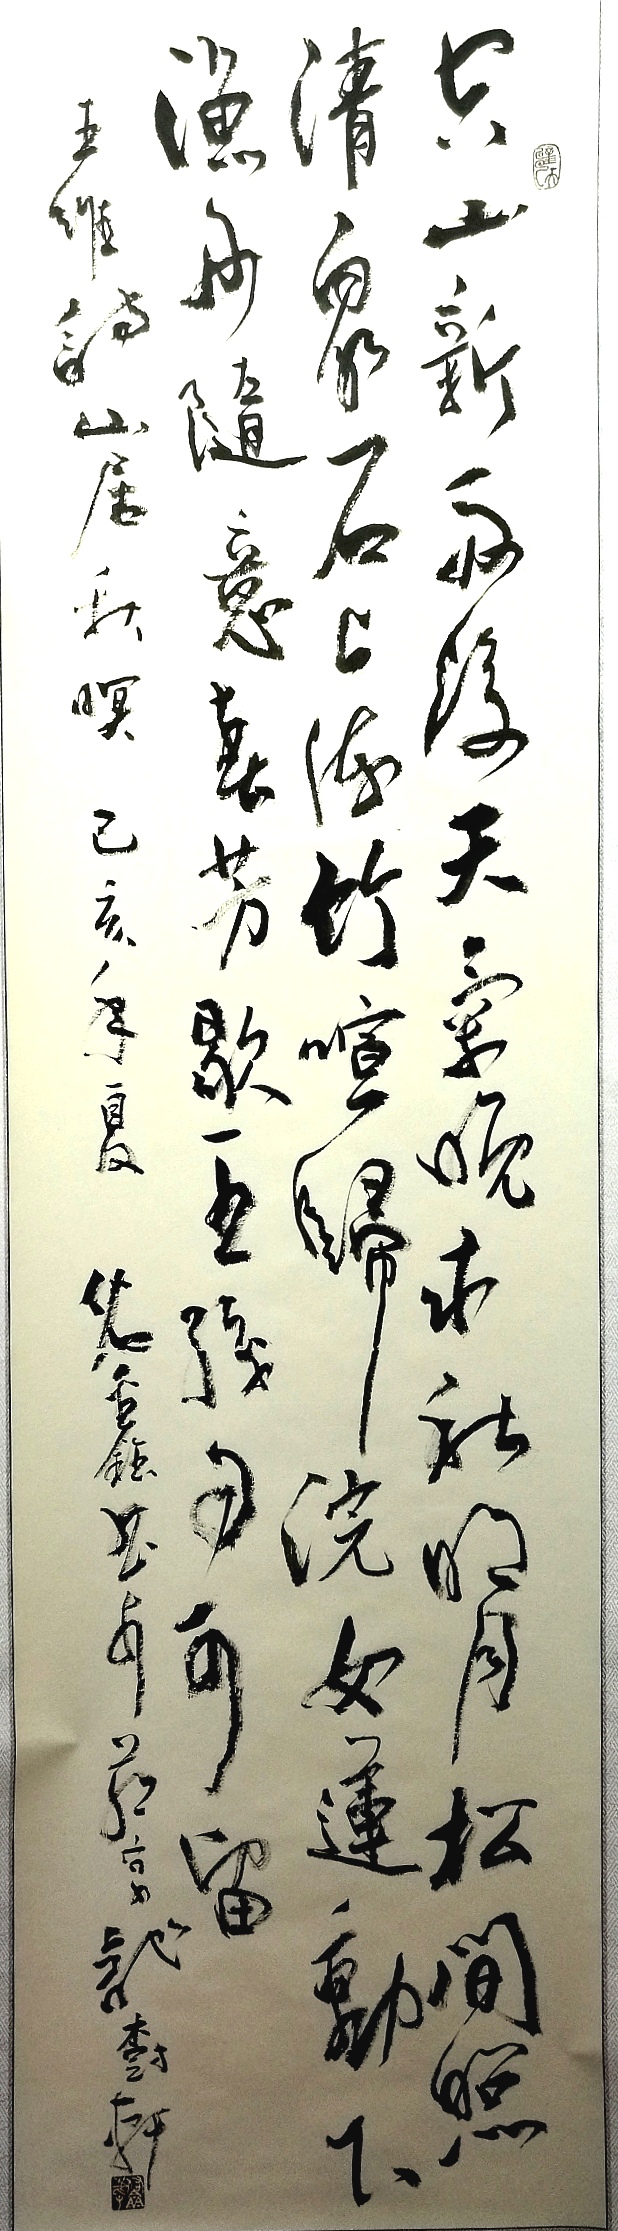 空山新雨後天氣晚來秋明月松間照
清泉石上流竹喧歸浣女蓮動下
漁舟隨意春芳歇王孫自可留
王維詩山居秋暝 己亥年夏 書於 軒